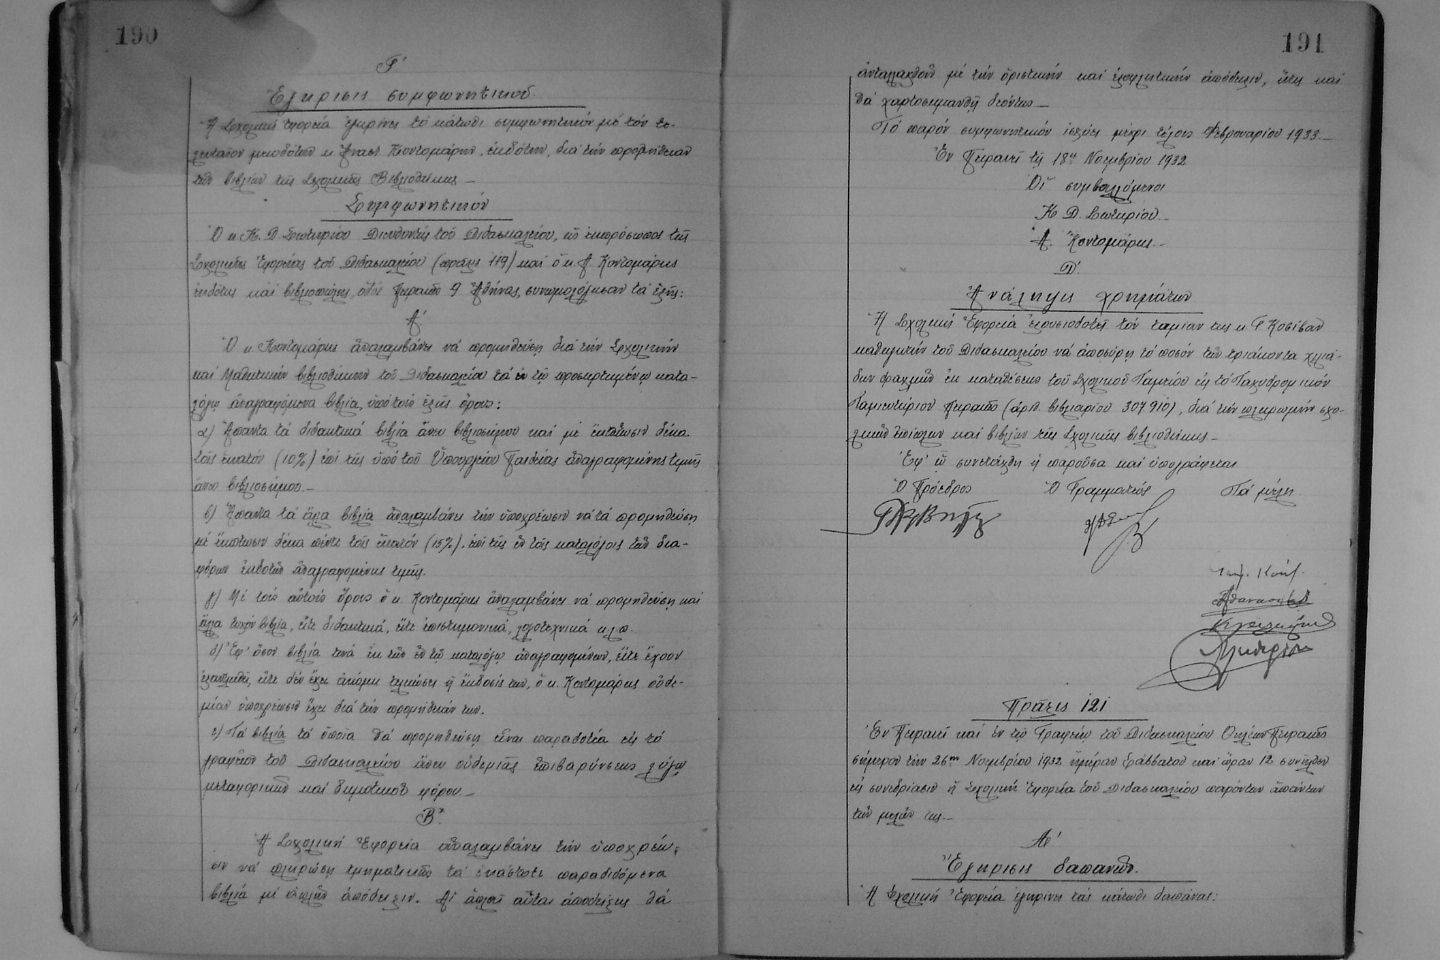 190
Γ'
Ἔγκρισις συμφωνητικοῦ.
Ἡ Σχολικὴ Ἐφορεία ἐγκρίνει τὸ κάτωθι συμφωνητικὸν μὲ τὸν τε-
λευταῖον μειοδότην κ. Ἀναστ. Κοντομάρην, ἐκδότην, διὰ τὴν προμήθειαν
τῶν βιβλίων τῆς Σχολικῆς Βιβλιοθήκης —
Συμφωνητικόν
Ὁ κ. Κ. Δ. Σωτηρίου Διευθυντὴς τοῦ Διδασκαλείου, ὡς ἐκπρόσωπος τῆς
Σχολικῆς Ἐφορείας τοῦ Διδασκαλείου (πρᾶξις 119) καὶ ὁ κ. Α. Κοντομάρης
ἐκδότης καὶ βιβλιοπώλης, ὁδὸς Πειραιῶς 9 Ἀθήνας, συνωμολόγησαν τὰ ἑξῆς:
Α'
Ὁ κ. Κοντομάρης ἀναλαμβάνει νὰ προμηθεύσῃ διὰ τὴν Σχολικὴν
καὶ Μαθητικὴν βιβλιοθήκην τοῦ Διδασκαλείου τὰ ἐν τῷ προσηρτημένῳ κατα-
λόγῳ ἀναγραφόμενα βιβλία, ὑπὸ τοὺς ἑξῆς ὅρους:
α) Ἅπαντα τὰ διδακτικὰ βιβλία ἄνευ βιβλιοσήμου καὶ μὲ ἔκπτωσιν δέκα
τοῖς ἑκατὸν (10%) ἐπὶ τῆς ὑπὸ τοῦ Ὑπουργείου Παιδείας ἀναγραφομένης τιμῆς
ἄνευ βιβλιοσήμου —
β) Ἅπαντα τὰ ἄλλα βιβλία ἀναλαμβάνει τὴν ὑποχρέωσιν νὰ τὰ προμηθεύσῃ
μὲ ἔκπτωσιν δέκα πέντε τοῖς ἑκατόν (15%). ἐπὶ τῆς ἐν τοῖς καταλόγοις τῶν δια-
φόρων ἐκδοτῶν ἀναγραφομένης τιμῆς.
γ) Μὲ τοὺς αὐτοὺς ὅρους ὁ κ. Κοντομάρης ἀναλαμβάνει νὰ προμηθεύσῃ καὶ
ἄλλα τυχὸν βιβλία, εἴτε διδακτικά, εἴτε ἐπιστημονικά, λογοτεχνικὰ κ.λ.π.
δ) Ἐφ' ὅσον βιβλία τινὰ ἐκ τῶν ἐν τῷ καταλόγῳ ἀναγραφομένων, εἴτε ἔχουν
ἐξαντληθῆ, εἴτε δὲν ἔχει ἀκόμη τελειώσει ἡ ἔκδοσίς των, ὁ κ. Κοντομάρης οὐδε-
μίαν ὑποχρέωσιν ἔχει διὰ τὴν προμήθειάν των.
ε) Τὰ βιβλία τὰ ὁποῖα θὰ προμηθεύσῃ εἶναι παραδοτέα εἰς τὸ
γραφεῖον τοῦ Διδασκαλείου ἄνευ οὐδεμιᾶς ἐπιβαρύνσεως λόγῳ
μεταφορικῶν καὶ δημοτικοῦ φόρου —
Β'.
Ἡ Σχολικὴ Ἐφορεία ἀναλαμβάνει τὴν ὑποχρέω-
σιν νὰ πληρώσῃ τμηματικῶς τὰ ἑκάστοτε παραδιδόμενα
βιβλία μὲ ἁπλῆν ἀπόδειξιν. Αἱ ἁπλαῖ αὗται ἀποδείξεις θὰ
191
ἀνταλλαχθοῦν μὲ τὴν ὁριστικὴν καὶ ἐξοφλητικὴν ἀπόδειξιν, ἥτις καὶ
θὰ χαρτοσημανθῇ δεόντως —
Τὸ παρὸν συμφωνητικὸν ἰσχύει μέχρι τέλους Φεβρουαρίου 1933 —
Ἐν Πειραιεῖ τῇ 18η Νοεμβρίου 1932
Οἱ συμβαλλόμενοι
Κ. Δ. Σωτηρίου —
Α. Κοντομάρης —
Δ'.
Ἀνάληψις χρημάτων
Ἡ Σχολικὴ Ἐφορεία ἐξουσιοδοτεῖ τὸν ταμίαν της κ. Γ. Κοσίβαν
καθηγητὴν τοῦ Διδασκαλείου νὰ ἀποσύρῃ τὸ ποσὸν τῶν τριάκοντα χιλιά-
δων δραχμῶν ἐκ καταθέσεων τοῦ Σχολικοῦ Ταμείου εἰς τὸ Ταχυδρομικὸν
Ταμιευτήριον Πειραιῶς (ἀριθ. βιβλιαρίου 307910), διὰ τὴν πληρωμὴν σχο-
λικῶν ἐπίπλων καὶ βιβλίων τῆς Σχολικῆς βιβλιοθήκης —
Ἐφ' ᾧ συνετάχθη ἡ παροῦσα καὶ ὑπογράφεται
Ὁ Πρόεδρος Ὁ Γραμματεύς Τὰ μέλη
Πρᾶξις 121
Ἐν Πειραιεῖ καὶ ἐν τῷ Γραφείῳ τοῦ Διδασκαλείου Θηλέων Πειραιῶς
σήμερον τὴν 26ην Νοεμβρίου 1932 ἡμέραν Σάββατον καὶ ὥραν 12 συνῆλθεν
εἰς συνεδρίασιν ἡ Σχολικὴ Ἐφορεία τοῦ Διδασκαλείου παρόντων ἁπάντων
τῶν μελῶν της —
Α'
Ἔγκρισις δαπανῶν.
Ἡ Σχολικὴ Ἐφορεία ἐγκρίνει τὰς κάτωθι δαπάνας: